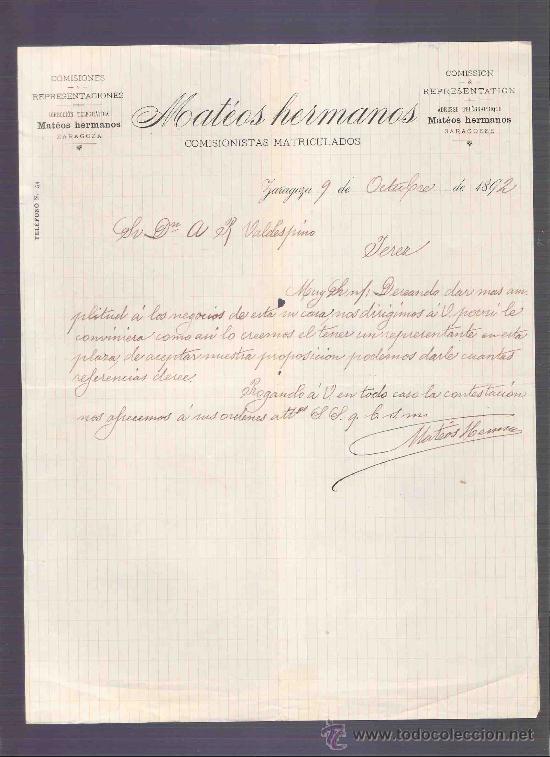 COMISIONES
Y
REPRESENTACIONES
DIRECCIÓN TELEGRÁFICA
Matéos hermanos
ZARAGOZA
COMISSION
&
REPRESENTATION
ADRESSE TÉLÉGRAPHIQUE
Matéos hermanos
SARAGOSSE
Matéos hermanos
COMISIONISTAS MATRICULADOS
TELÉFONO N. 54
Zaragoza 9 de Octubre de 1892
Sr Dn A R Valdespino
Jerez
Muy Sr n/: Deseando dar mas am-
plitud á los negocios de esta su casa nos dirigimos á V. por si le
conviniera como asi lo creemos el tener un representante en esta
plaza, de aceptar nuestra proposicion podemos darle cuantas
referencias desee.
Rogando á V. en todo caso la contestación
nos ofrecemos á sus ordenes atts S. S. q b s m
Matéos Hermanos
www.todocoleccion.net